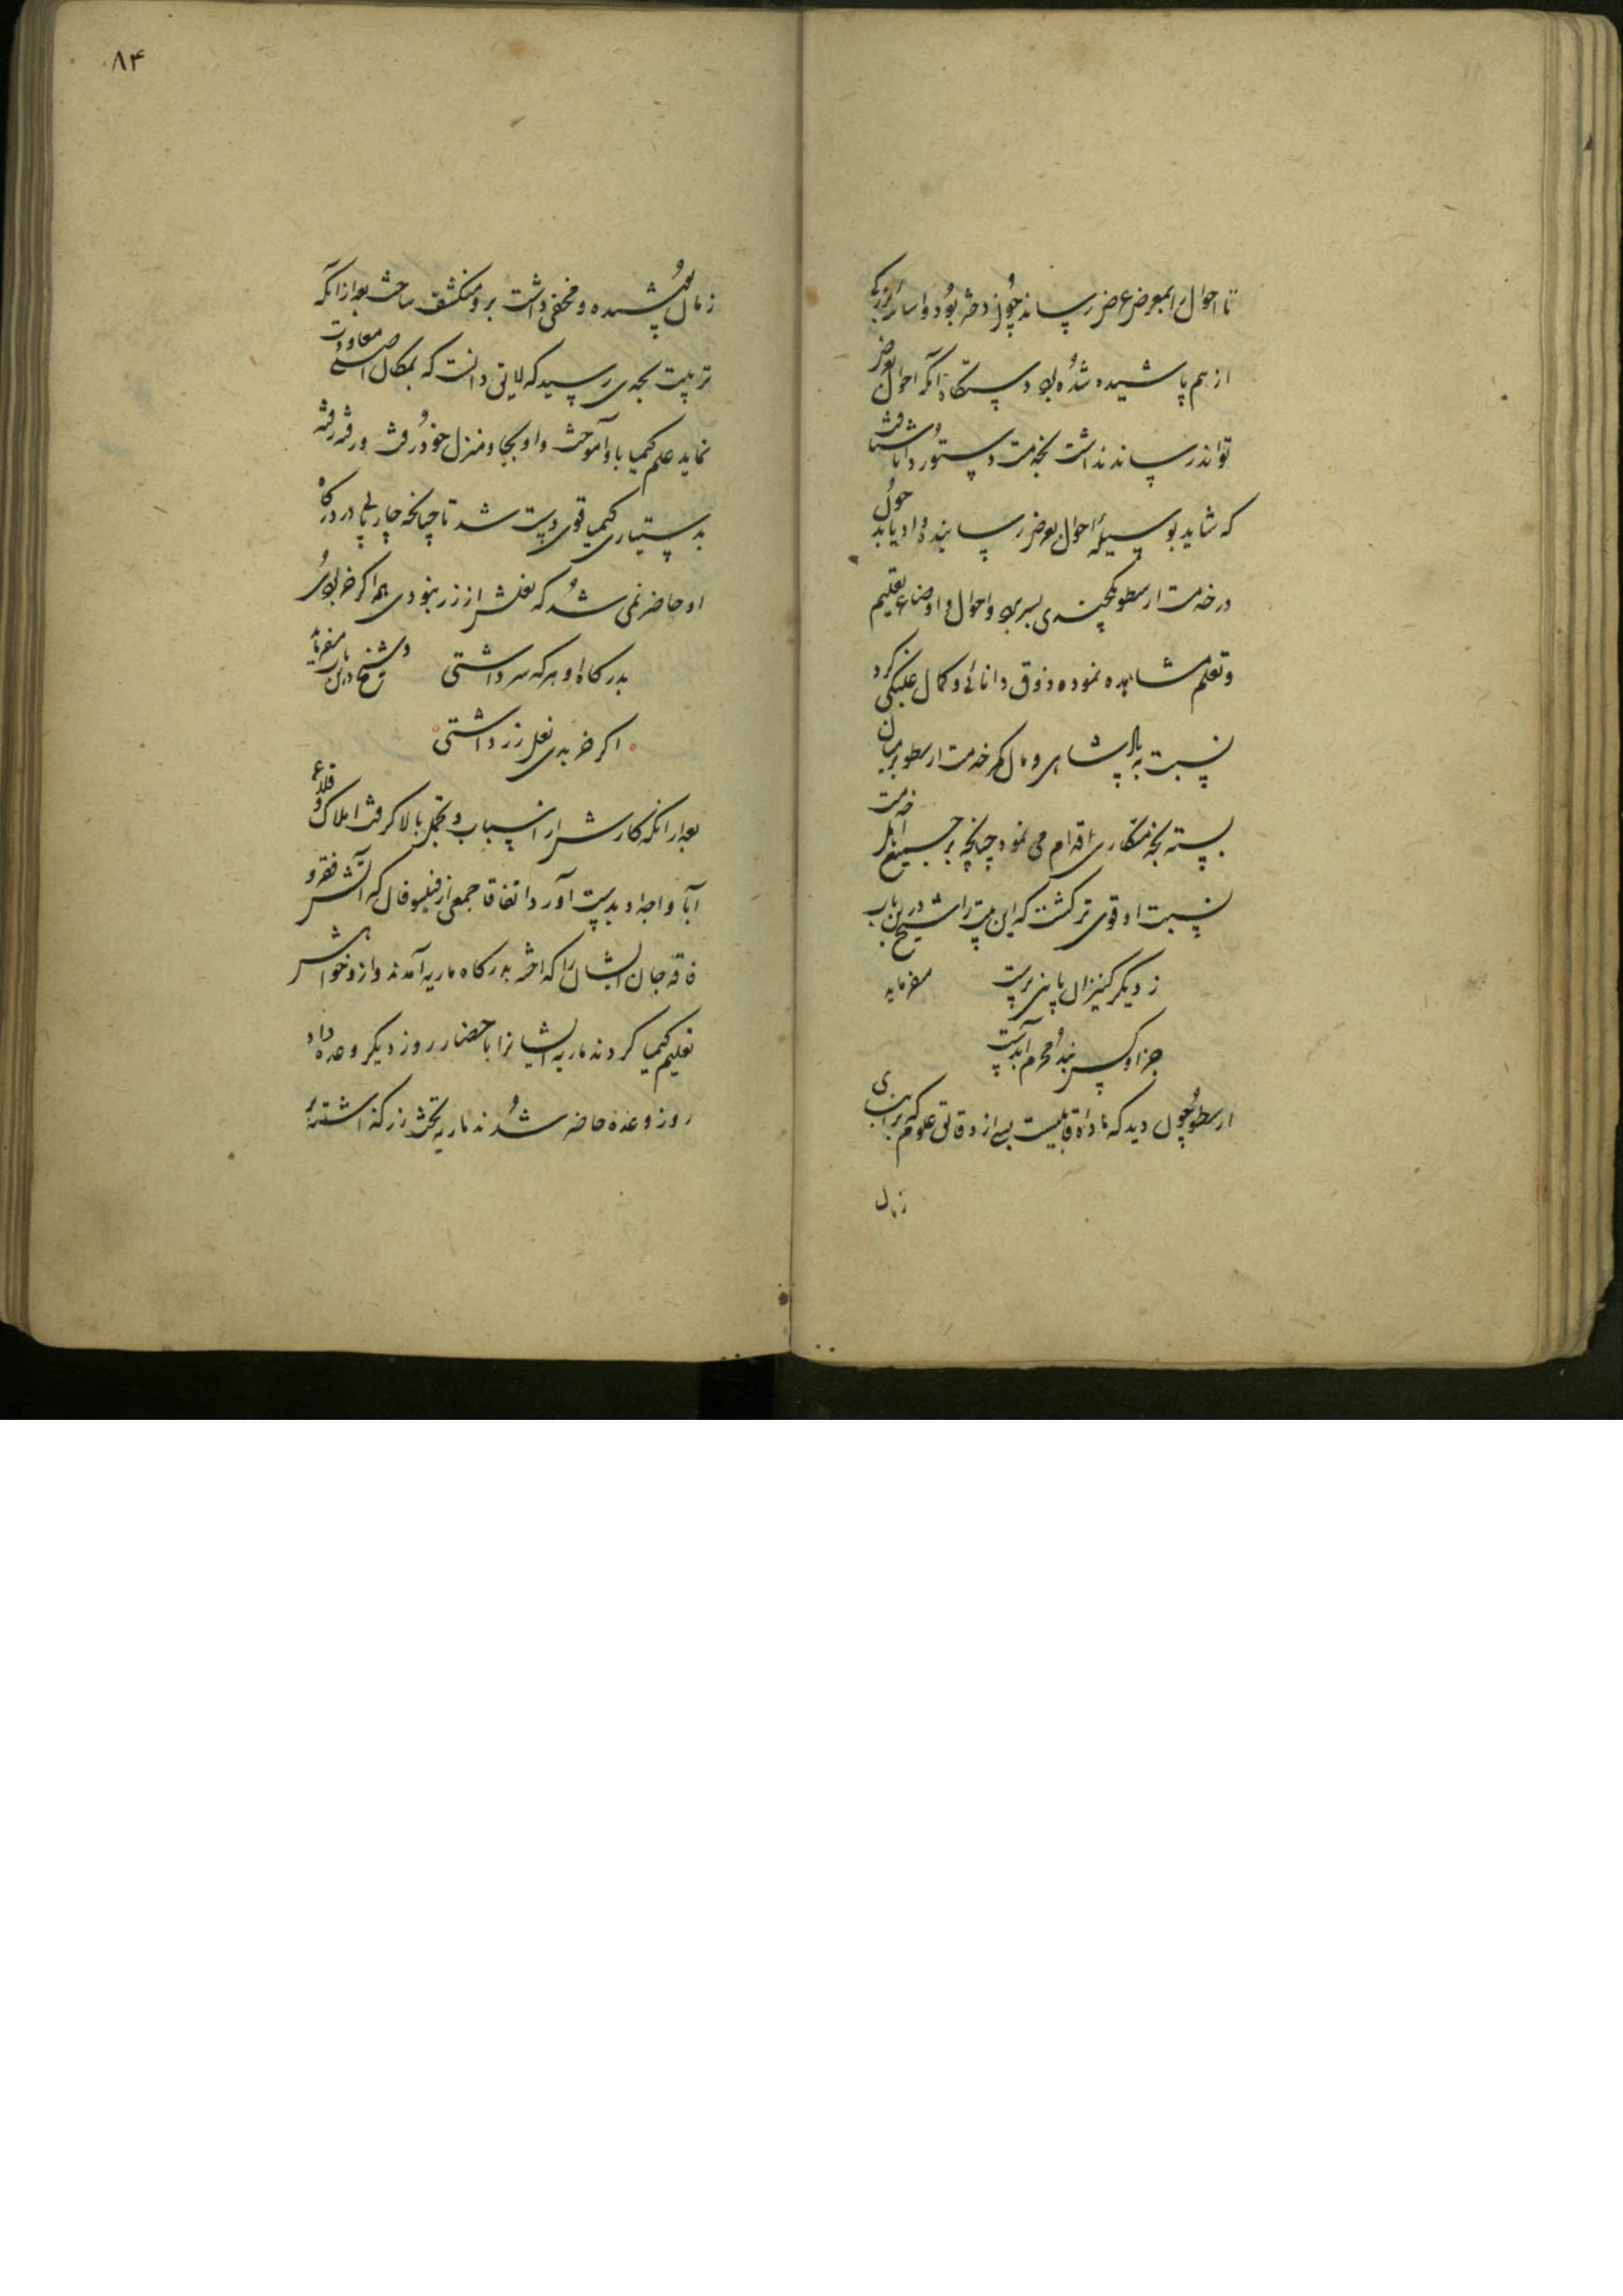 تا احوال را بمعرض عرض رساند چون دختر بود و اساس بزرگی
از هم پاشیده شده بود دستگاه آنکه احوال بعرض
تواند رساند نداشت بخدمت دستور دانا شتافت
که شاید بوسیله احوال بعرض رسانیده داد یابد چون
در خدمت ارسطو چندی بسر برد و احوال و اوضاع تعلیم
و تعلم مشاهده نموده ذوق دانائی و کمال کرد
نسبت به پادشاهی و مال کمر خدمت ارسطو بر میان
بسته بخدمتکاری اقدام می نمود چنانچه بر جمیع اهل خدمت
نسبت او قوی تر گشت که این بیت را شیخ درین باب
ز دیگر کنیزان پائین پرست میفرماید
جز او کس نشد محرم آبدست
ارسطو چون دید که ماده قابلیست بسی از دقائق علوم که بر ابنای
زمان
۸۴
زمان پوشیده و مخفی داشت برو منکشف ساخت بعد از آنکه
تربیت بجدی رسید که لایق دانست که بمکان اصلی معاودت
نماید علم کیمیا باو آموخت و او بجا و منزل خود رفت و رفته رفته
بدستیاری کیمیا قوی دست شد تا چنانچه چارپای در درگاه
او حاضر نمی شد که نعلش از زر نبودی هم اگر خر بودی
بدرگاه او هر که سر داشتی و شیخ درین باب میفرماید
اگر خر بدی نعل زر داشتی
بعد از آنکه کارش از اسباب و تجمل بالا گرفت املاک و قلاع
آبا و اجداد بدست آورد اتفاقا جمعی از فیلسوفان که آتش فقر و
فاقه جان ایشان را گداخته بدرگاه ماریه آمدند و ازو خواهش
تعلیم کیمیا کردند ماریه ایشانرا باحضار روز دیگر وعده داد
روز وعده حاضر شدند ماریه تخت زر گذاشته بر